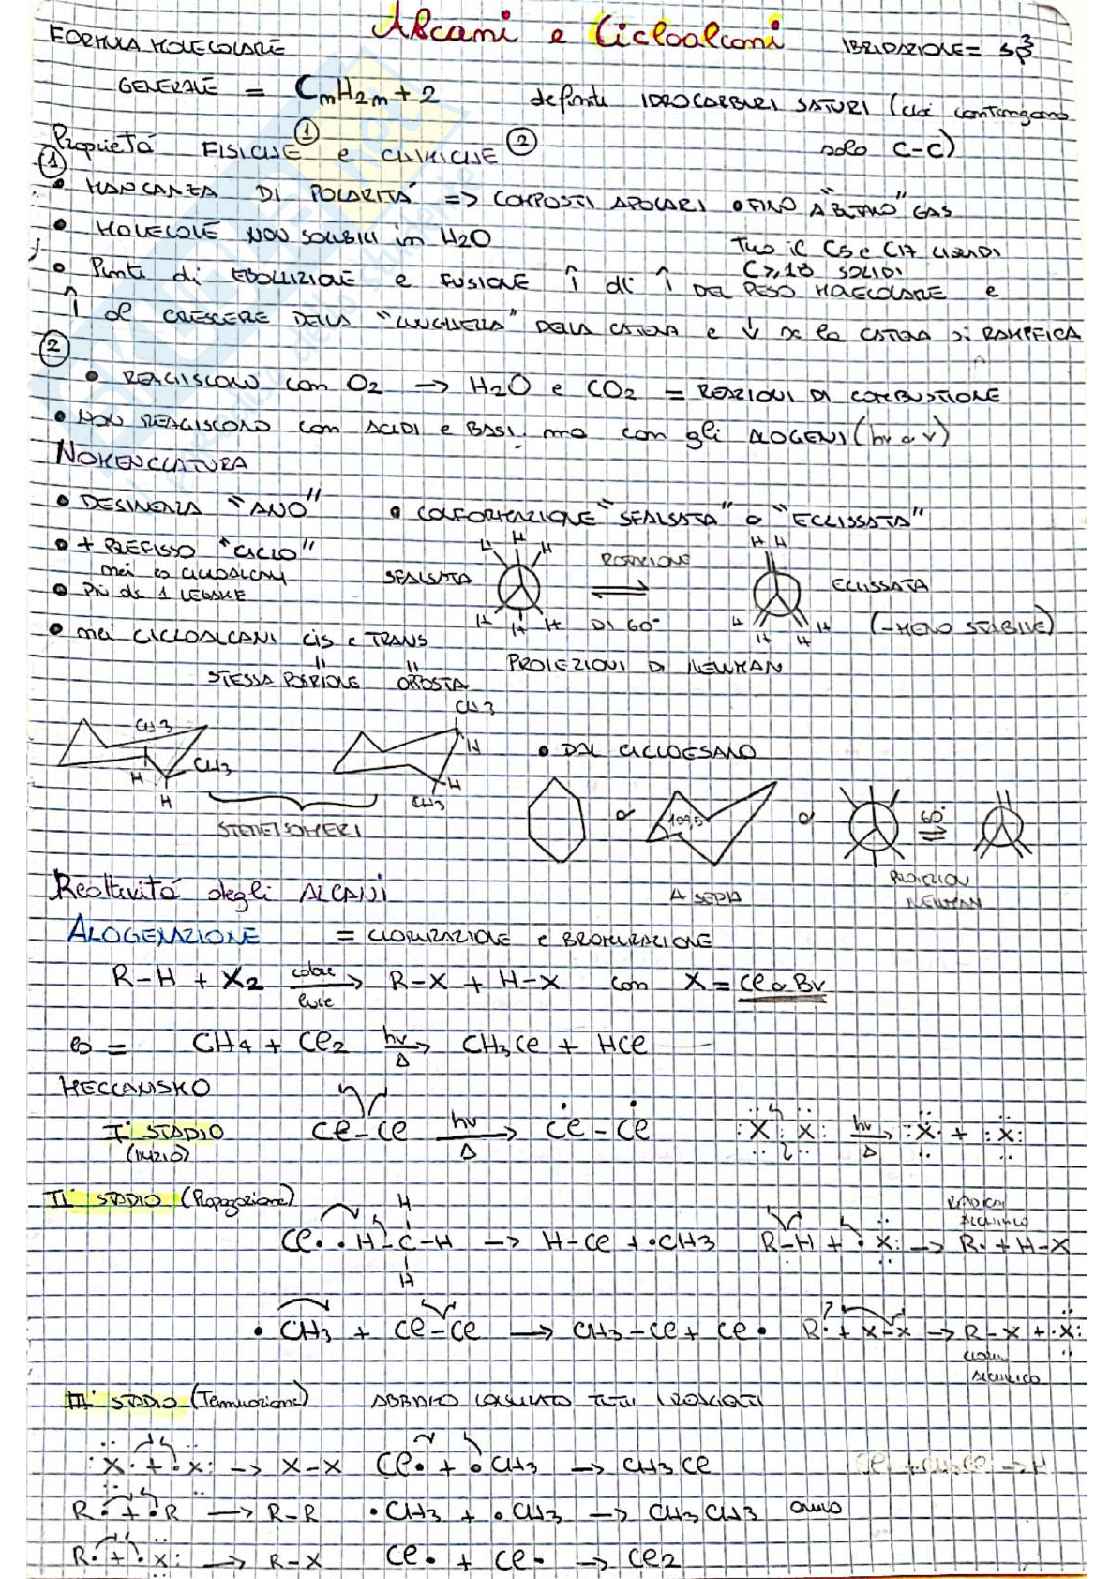 Alcani e Cicloalcani
FORMULA MOLECOLARE IBRIDAZIONE = sp3
GENERALE = CnH2n+2 definiti IDROCARBURI SATURI (che contengono
solo C-C)
Proprietà FISICHE ① e CHIMICHE ②
①
• MANCANZA DI POLARITÀ => COMPOSTI APOLARI • FINO A "BUTANO" GAS
• MOLECOLE NON SOLUBILI in H2O TRA il C5 e C17 LIQUIDI
C ≥ 18 SOLIDI
• Punti di EBOLLIZIONE e FUSIONE ↑ di ↑ DEL PESO MOLECOLARE e
↑ al CRESCERE DELLA "LUNGHEZZA" DELLA CATENA e ↓ se la CATENA si RAMIFICA
②
• REAGISCONO con O2 → H2O e CO2 = REAZIONI DI COMBUSTIONE
• NON REAGISCONO con ACIDI e BASI, ma con gli ALOGENI (hν o
NOMENCLATURA
• DESINENZA "ANO" • CONFORMAZIONE "SFALSATA" o "ECLISSATA"
• + PREFISSO "CICLO"
nei CICLOALCANI
• Più di 1 LEGAME
SFALSATA H H H H H H ROTAZIONE DI 60° H H H H H H ECLISSATA
(-MENO STABILE)
• nei CICLOALCANI cis e TRANS PROIEZIONI DI NEWMAN
STESSA POSIZIONE OPPOSTA
CH3 CH3 H H CH3 H H CH3
STEREISOMERI
• DAL CICLOESANO
o 109,5 o 60°
A SEDIA PROIEZIONI NEWMAN
Reattività degli ALCANI
ALOGENAZIONE = CLORURAZIONE e BROMURAZIONE
R-H + X2 calore luce → R-X + H-X con X = Cl o Br
es = CH4 + Cl2 hν Δ → CH3Cl + HCl
MECCANISMO
I° STADIO Cl-Cl hν Δ → Cl• - Cl• :X : X: hν Δ → :X• + :X:
(INIZIO)
II° STADIO (Propagazione) RADICALE ALCHILICO
H
Cl• •H-C-H → H-Cl + •CH3 R-H + •X: → R• + H-X
H
•CH3 + Cl-Cl → CH3-Cl + Cl• R• + X-X → R-X + •X:
ALCHILICO
III° STADIO (Terminazione) ABBIAMO CONSUMATO TUTTI I REAGENTI
:X• + •X: → X-X Cl• + •CH3 → CH3Cl
R• + •R → R-R •CH3 + •CH3 → CH3CH3
R• + •X: → R-X Cl• + Cl• → Cl2